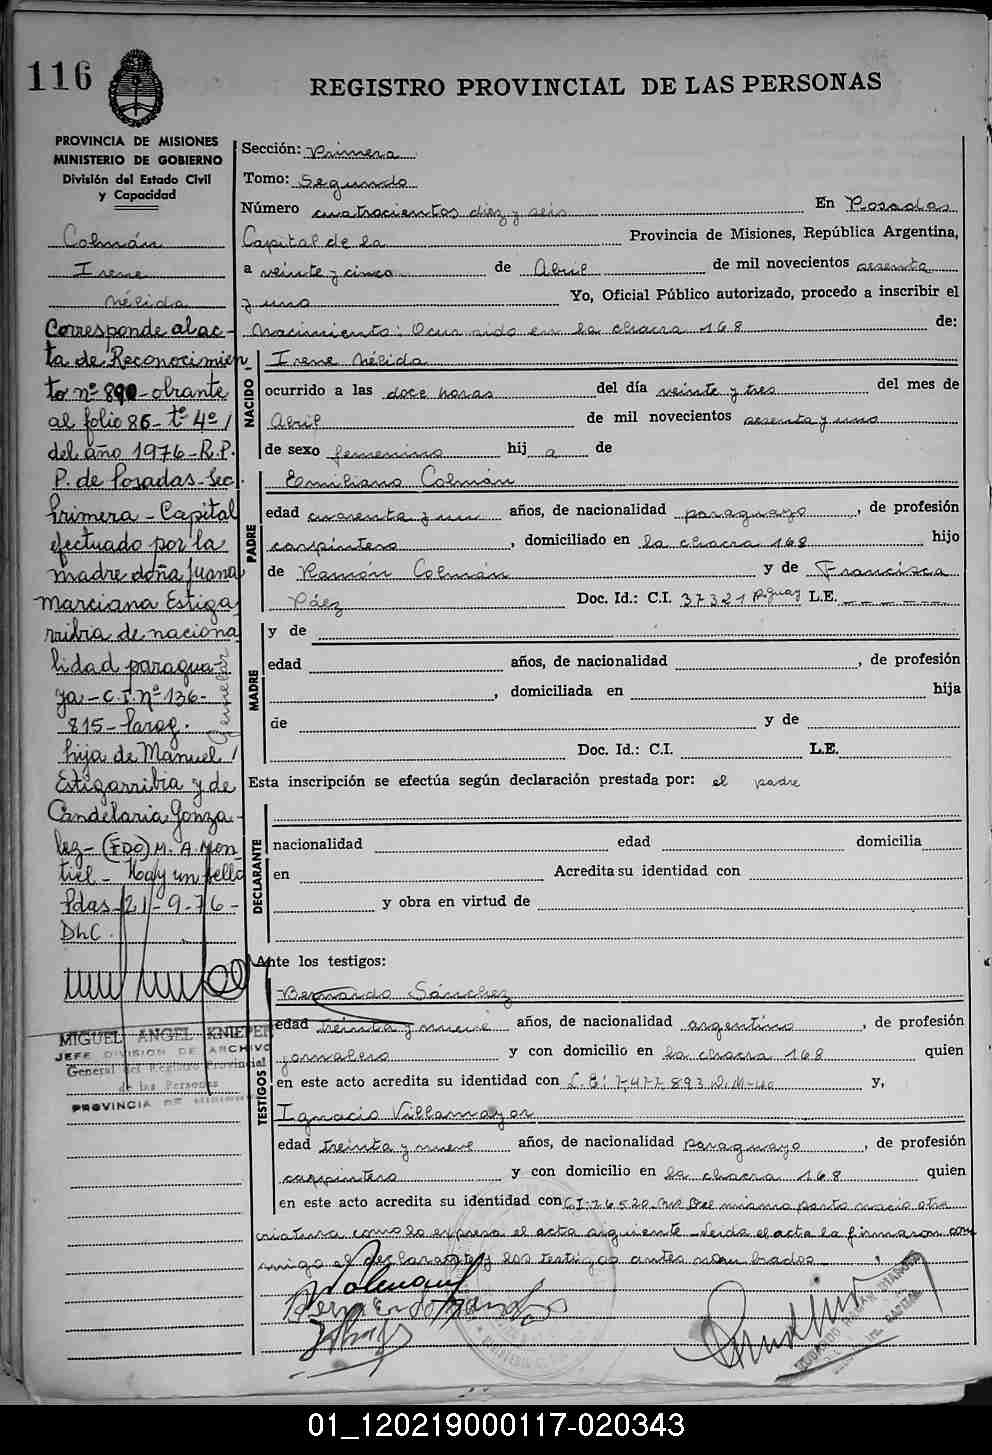 116
REGISTRO PROVINCIAL DE LAS PERSONAS
PROVINCIA DE MISIONES
MINISTERIO DE GOBIERNO
División del Estado Civil
y Capacidad
Colmán
Irene
Nélida
Corresponde al ac-
ta de Reconocimien
to nº 890 - obrante
al folio 86 - tº 4º /
del año 1976 - R.P.
P. de Posadas - Sec.
Primera - Capital
efectuado por la
madre doña Juana
Marciana Estiga
rribia de naciona
lidad paragua-
ya - C.I. nº 136-
815 - Parag.
hija de Manuel /
Estigarribia y de
Candelaria Gonza-
lez - (FDO) M. A. Mon-
tiel - Hay un sello
Pdas - 21 - 9 - 76 -
DhC.
MIGUEL ANGEL KNIEPER
JEFE DIVISION DE ARCHIVO
General del Registro Provincial
de las Personas
PROVINCIA DE MISIONES
Sección: Primera
Tomo: Segundo
Número cuatrocientos diez y seis En Posadas
Capital de la Provincia de Misiones, República Argentina,
a veinte y cinco de Abril de mil novecientos sesenta
y uno Yo, Oficial Público autorizado, procedo a inscribir el
Nacimiento: Ocurrido en la chacra 168 de:
NACIDO
Irene Nélida
ocurrido a las doce horas del día veinte y tres del mes de
Abril de mil novecientos sesenta y uno
de sexo femenino hij a de
PADRE
Emiliano Colmán
edad cuarenta y un años, de nacionalidad paraguayo, de profesión
carpintero, domiciliado en la chacra 168 hijo
de Ramón Colmán y de Francisca
Páez Doc. Id.: C.I. 37321 Pguay L.E.
MADRE
y de
edad años, de nacionalidad , de profesión
, domiciliada en hija
de y de
Doc. Id.: C.I. L.E.
Esta inscripción se efectúa según declaración prestada por: el padre
DECLARANTE
nacionalidad edad domicilia
en Acredita su identidad con
y obra en virtud de
Ante los testigos:
TESTIGOS
Bernardo Sánchez
edad treinta y nueve años, de nacionalidad argentino, de profesión
jornalero y con domicilio en la chacra 168 quien
en este acto acredita su identidad con L.E: 7.477.893 D.M-40 y,
Ignacio Villamayor
edad treinta y nueve años, de nacionalidad paraguayo, de profesión
carpintero y con domicilio en la chacra 168 quien
en este acto acredita su identidad con C.I-76520. Del mismo parto nació otra
criatura como lo expresa el acta siguiente - Leida el acta la firmaron con
migo el declarante y los testigos antes nombrados
01_120219000117-020343